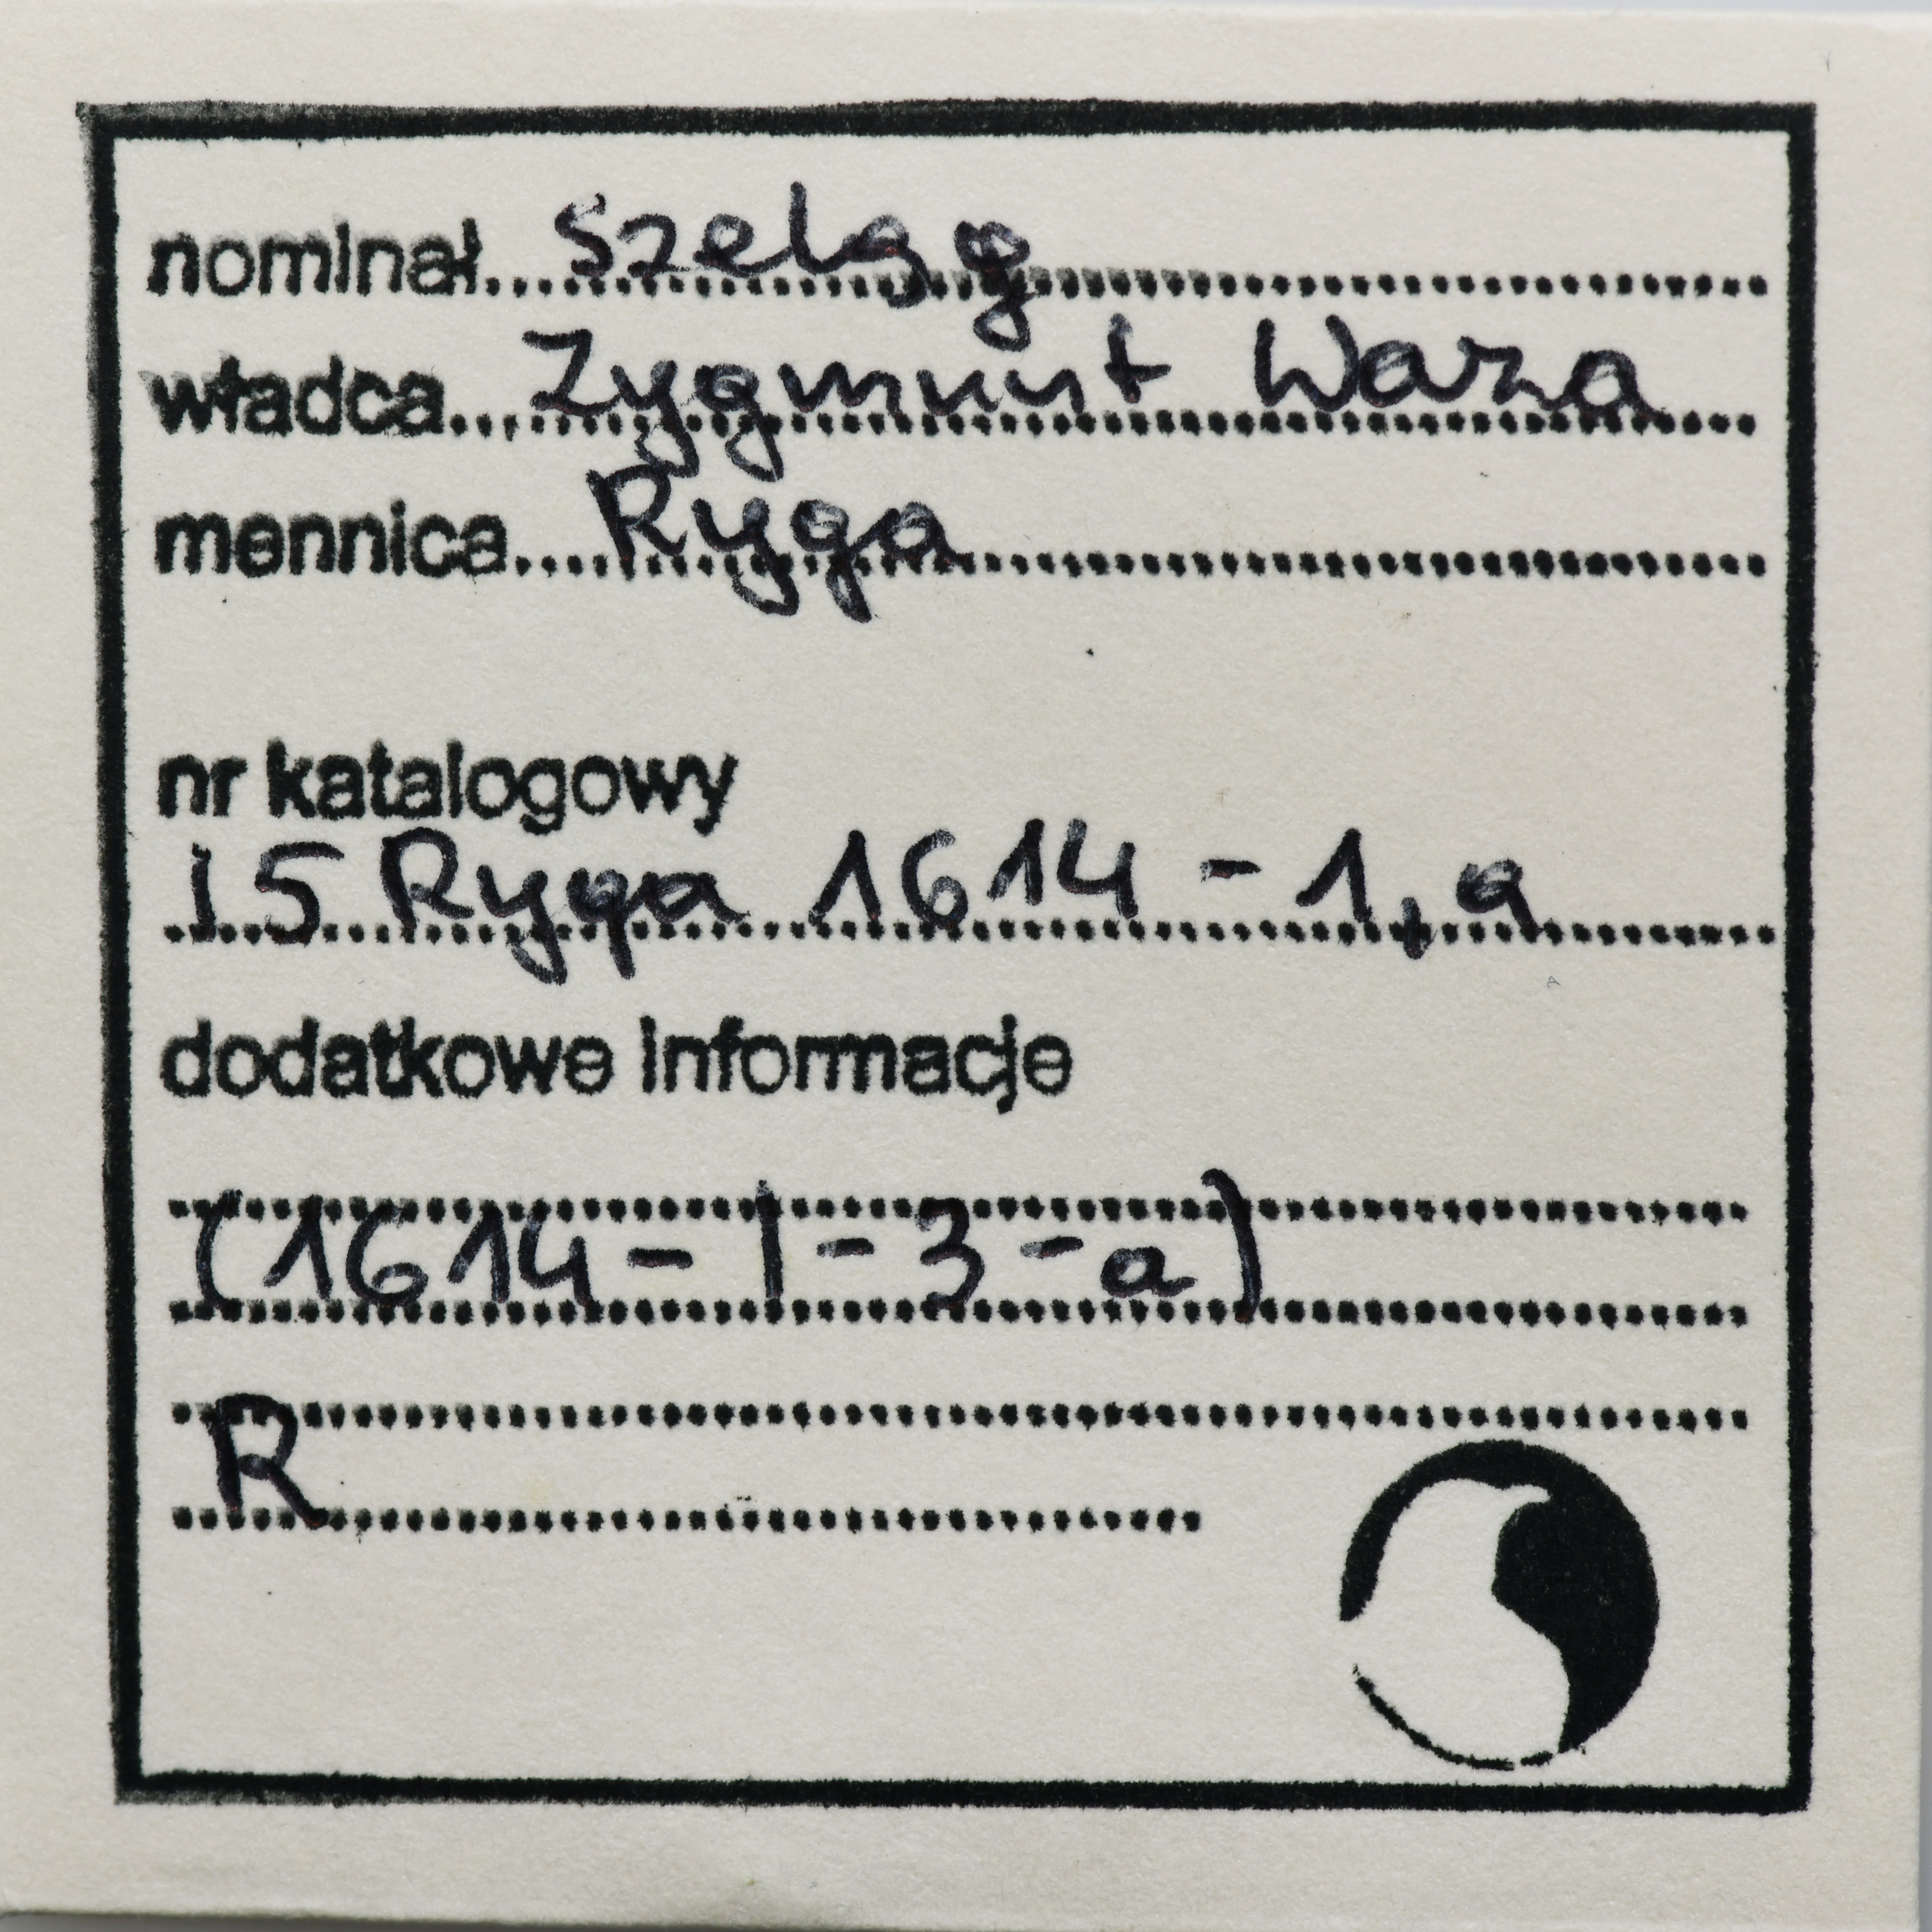 nominał...szeląg
władca...Zygmunt Waza
mennica....Ryga
nr katalogowy
15 Ryga 1614 - 1, a
dodatkowe informacje
(1614 - 1 - 3 - a)
R